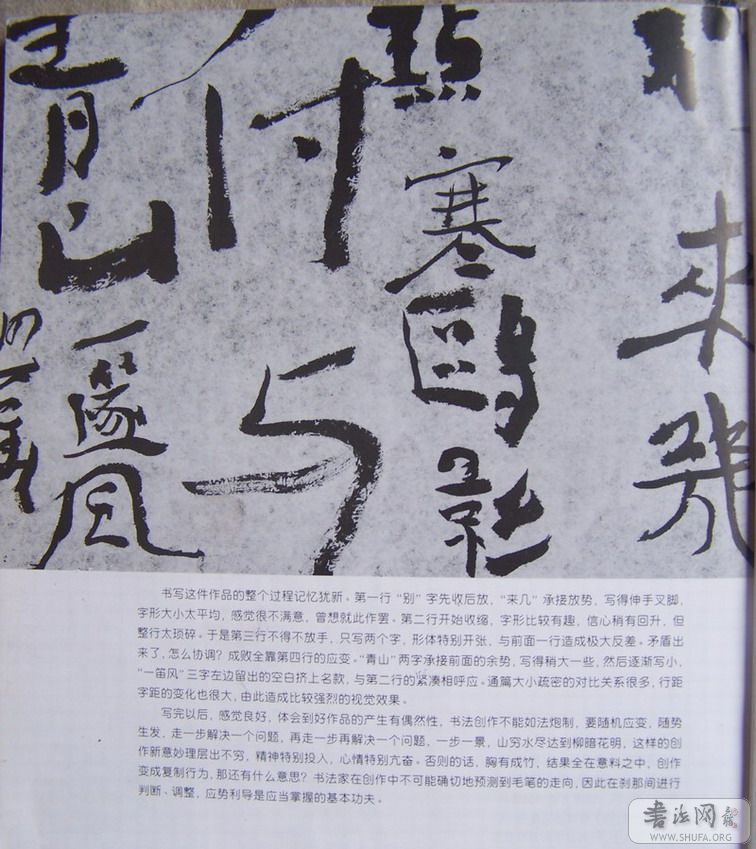 别来幾
點寒鷗影
付与
青山一篴风
书写这件作品的整个过程记忆犹新。第一行“别”字先收后放，“来几”承接放势，写得伸手叉脚，
字形大小太平均，感觉很不满意，曾想就此作罢。第二行开始收缩，字形比较有趣，信心稍有回升，但
整行太琐碎。于是第三行不得不放手，只写两个字，形体特别开张，与前面一行造成极大反差。矛盾出
来了，怎么协调？成败全靠第四行的应变。“青山”两字承接前面的余势，写得稍大一些，然后逐渐写小，
“一笛风”三字左边留出的空白挤上名款，与第二行的紧凑相呼应。通篇大小疏密的对比关系很多，行距
字距的变化也很大，由此造成比较强烈的视觉效果。
写完以后，感觉良好，体会到好作品的产生有偶然性，书法创作不能如法炮制，要随机应变，随势
生发，走一步解决一个问题，再走一步再解决一个问题，一步一景，山穷水尽达到柳暗花明，这样的创
作新意妙理层出不穷，精神特别投入，心情特别亢奋。否则的话，胸有成竹，结果全在意料之中，创作
变成复制行为，那还有什么意思？书法家在创作中不可能确切地预测到毛笔的走向，因此在刹那间进行
判断、调整，应势利导是应当掌握的基本功夫。
书法网
WWW.SHUFA.ORG